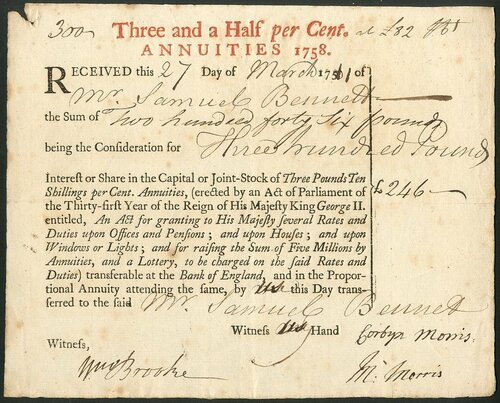 300 Three and a Half per Cent. at £82
ANNUITIES 1758.
RECEIVED this 27 Day of March 1761 of
Mr. Samuel Bennett
the Sum of Two hundred forty Six pounds
being the Consideration for Three hundred Pounds
Interest or Share in the Capital or Joint-Stock of Three Pounds Ten
Shillings per Cent. Annuities, (erected by an Act of Parliament of £246
the Thirty-first Year of the Reign of His Majesty King George II.
entitled, An Act for granting to His Majesty several Rates and
Duties upon Offices and Pensions; and upon Houses; and upon
Windows or Lights; and for raising the Sum of Five Millions by
Annuities, and a Lottery, to be charged on the said Rates and
Duties) transferable at the Bank of England, and in the Propor-
tional Annuity attending the same, by us this Day trans-
ferred to the said Mr. Samuel Bennett
Witness our Hand Corbyn Morris.
Witness, M: Morris
Wm Brooke